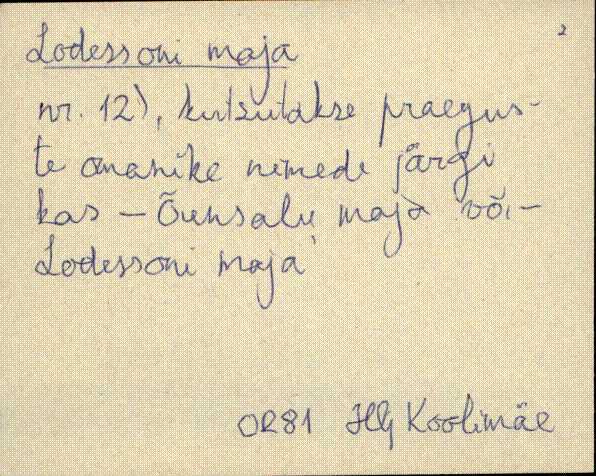 2
Lodessoni maja
nr. 12), kutsutakse praegus-
te omanike nimede järgi
kas – Õunsalu maja või –
Lodessoni maja
OR81 Hlj Koolimäe